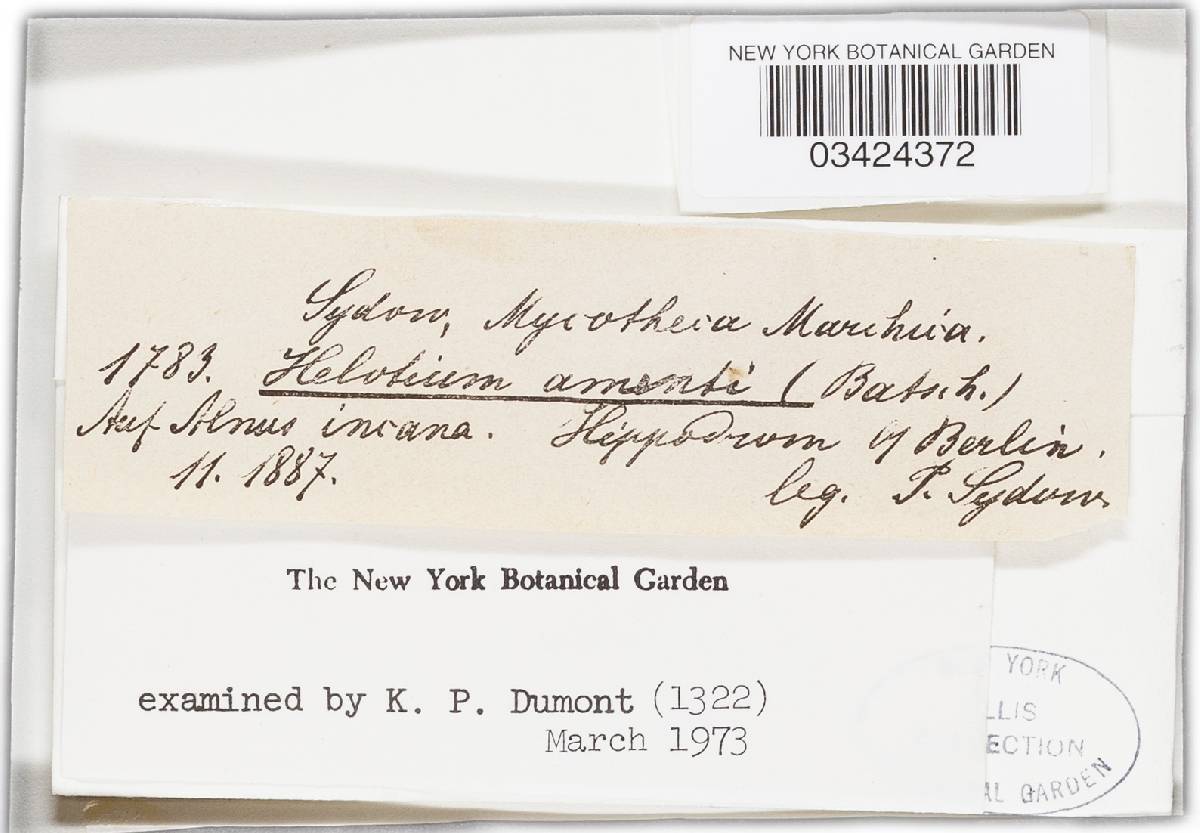 NEW YORK BOTANICAL GARDEN
03424372
Sydow, Mycotheca Marchica.
1783. Helotium amenti (Batsch.)
Auf Alnus incana. Hippodrom b/ Berlin.
11. 1887.
leg. P. Sydow.
The New York Botanical Garden
examined by K. P. Dumont (1322)
March 1973
YORK
LLIS
ECTION
AL GARDEN